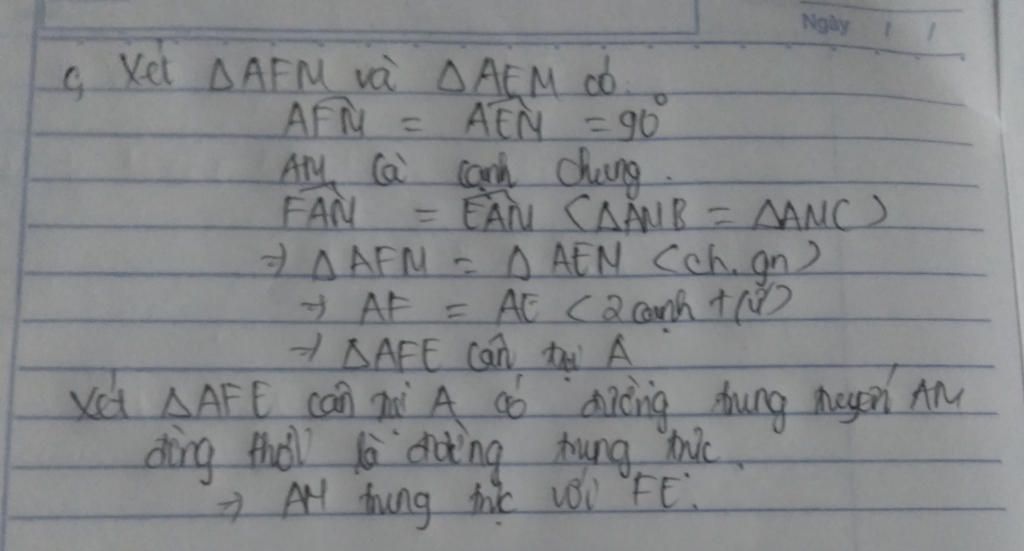 Ngày / /
c, Xét ΔAFM và ΔAEM có
AFM = AEM = 90°
AM là cạnh chung.
FAM = EAM (ΔAMB = ΔAMC)
=> ΔAFM = ΔAEM (ch.gn)
=> AF = AE (2 cạnh t/ứ)
=> ΔAFE cân tại A
Xét ΔAFE cân tại A có đường trung tuyến AM
đồng thời là đường trung trực.
=> AM trung trực với FE.